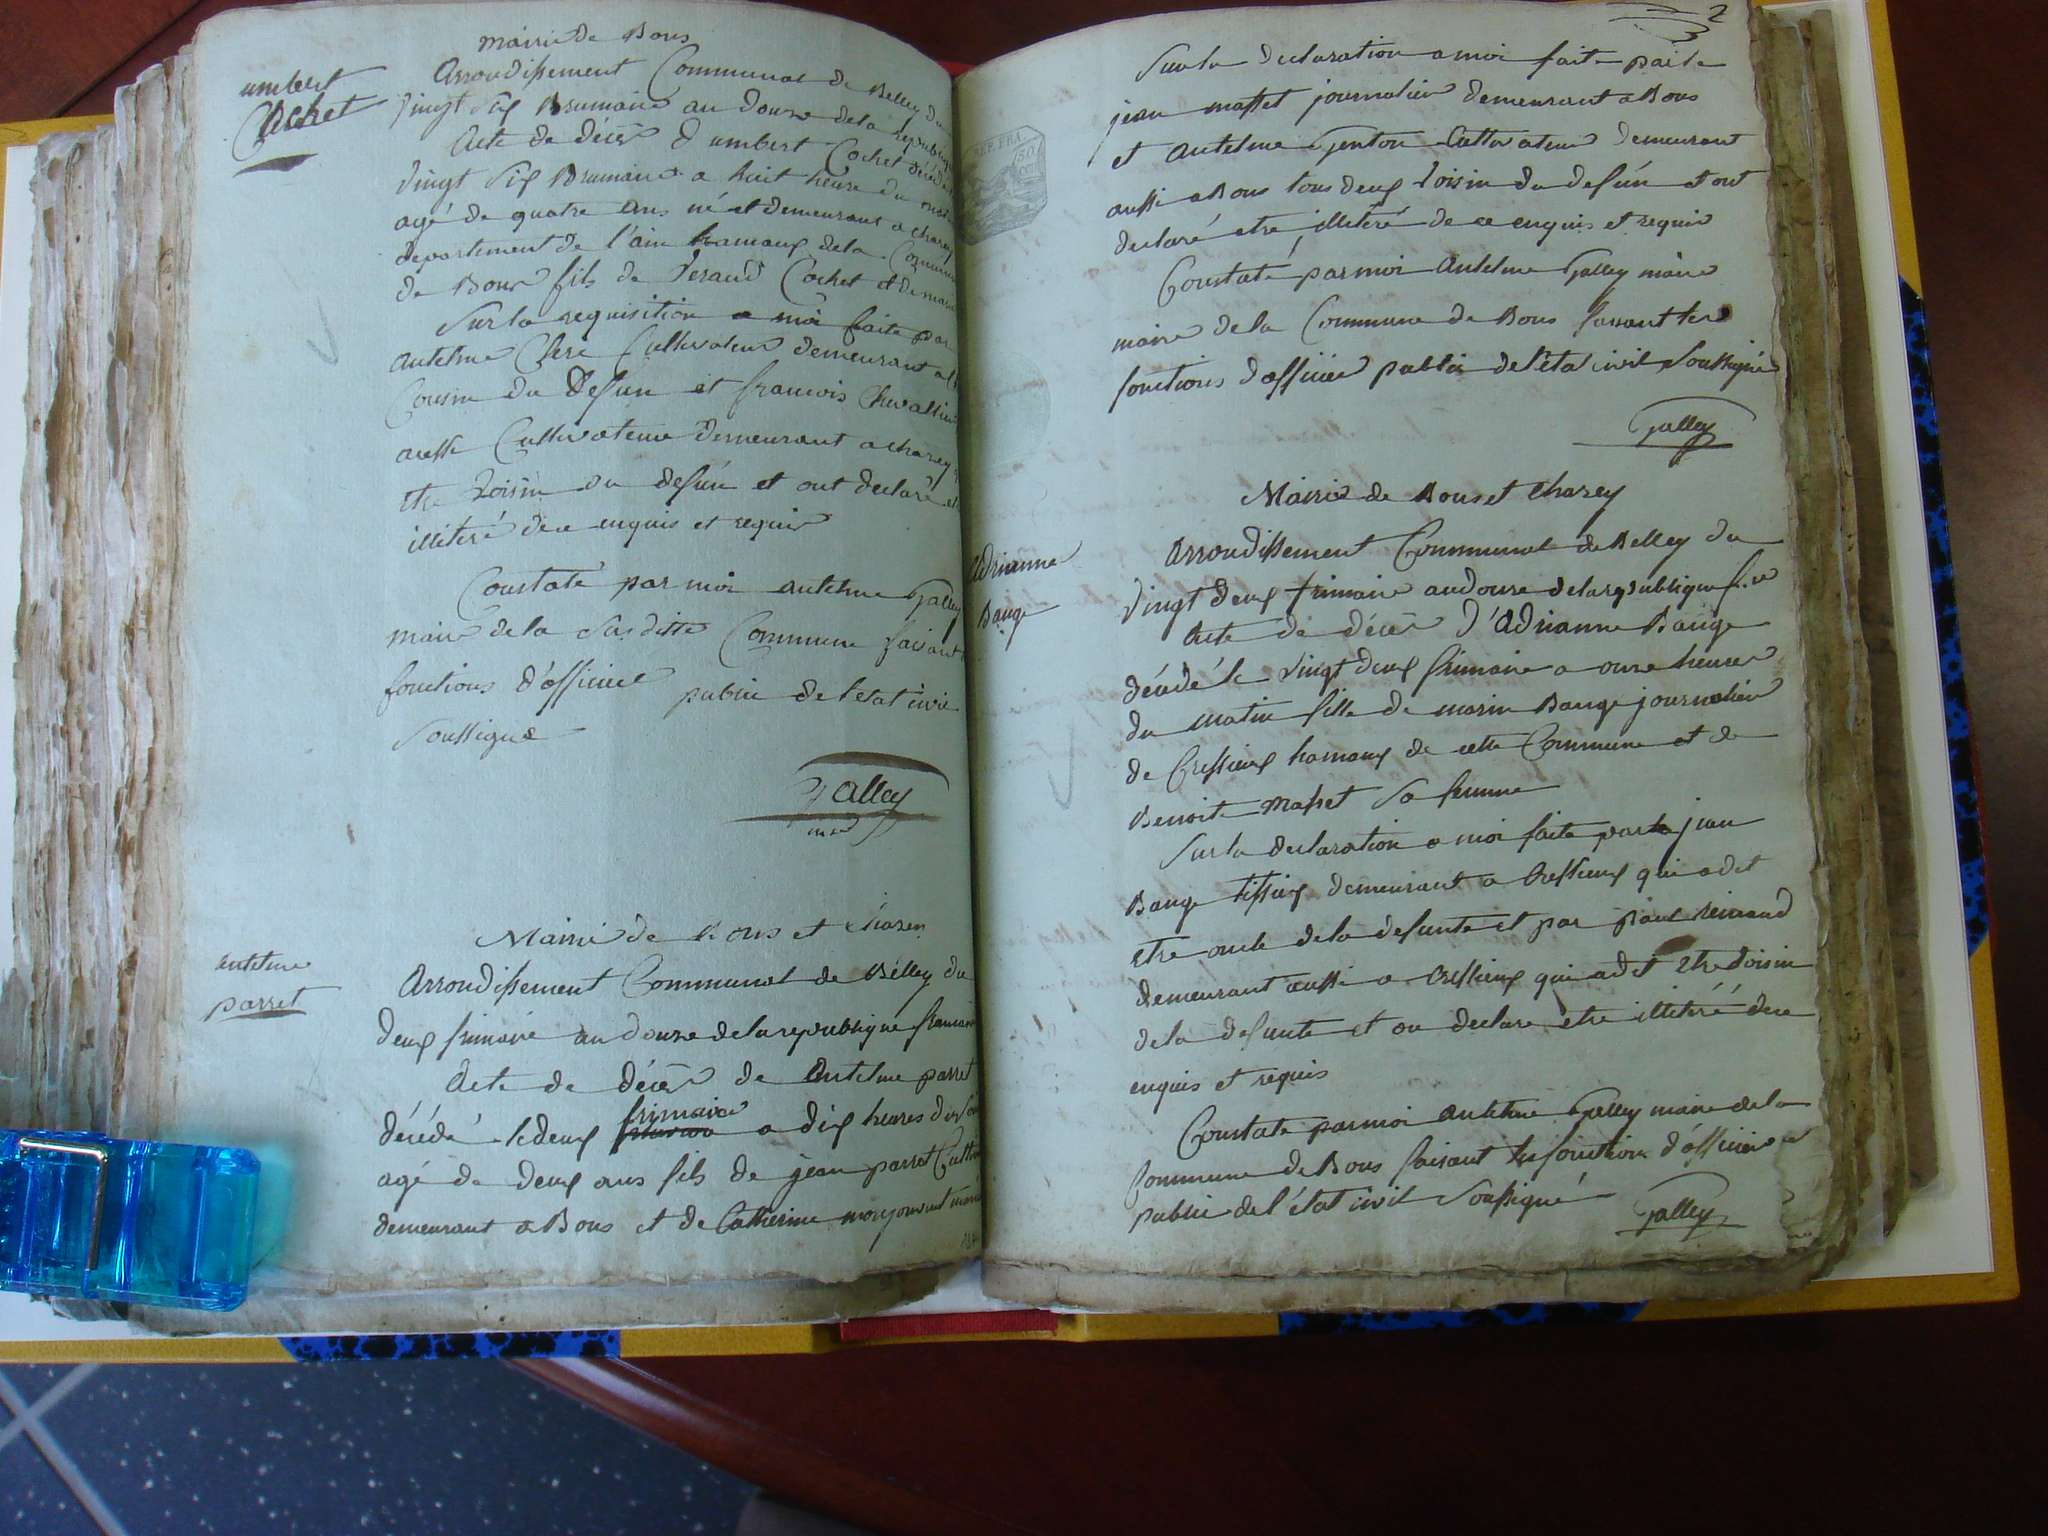 mairie de Bons
umbert
Cochet
Arrondissement Communal de Belley du
vingt six Brumaire an douze de la republique
Acte de décès d'umbert Cochet décédé
vingt six Brumaire a huit heure du
agé de quatre ans né et demeurant a charey
departement de l'ain hamaux de la Commune
de Bons fils de Cochet et de
Sur la requisition a moi faite par
antelme Clerc Cultivateur demeurant
Cousin du Defun et francois Chevallier
aussi Cultivateur demeurant a charey
etre voisin du defún et ont declaré
illitéré de ce enquis et requis
Constaté par moi antelme Galley
maire de la susditte Commune faisant
fonctions d'officier public de l'etat civil
soussigné
Galley
Mairie de Bons et Charey
antelme
parret
Arrondissement Communal de Belley du
deux frimaire an douze de la republique
Acte de décès de Antelme parret
décédé le deux frimaire a dix heures du
agé de deux ans fils de jean parret
demeurant a Bons et de Catherine
2
Sur la declaration a moi faite par le
jean masset journalier demeurant a Bons
et antelme Genton Cultivateur demeurant
aussi a Bons tous deux voisin du defún et ont
declaré etre illitéré de ce enquis et requis
Constaté par moi Antelme Galley maire
maire de la Commune de Bons faisant les
fonctions d'officier public de l'état civil soussigné
Galley
REP. FRA.
Mairie de Bons et Charey
Adrianne
Bauge
Arrondissement Communal de Belley du
vingt deux frimaire an douze de la republique
Acte de décès d'Adrianne Bauge
décédé le vingt deux frimaire a onze heures
du matin fille de marin Bauge journalier
de Cressieux hamaux de cette Commune et de
Benoite Masset sa femme
Sur la declaration a moi faite par le jean
Bauge tissieux demeurant a Cressieux qui a dit
etre oncle de la defunte et par
demeurant aussi a Cressieux qui a dit etre voisin
de la defunte et on declare etre illitéré de ce
enquis et requis
Constaté par moi antelme Galley maire de la
Commune de Bons faisant les fonction d'officier
public de l'état civil soussigné
Galley